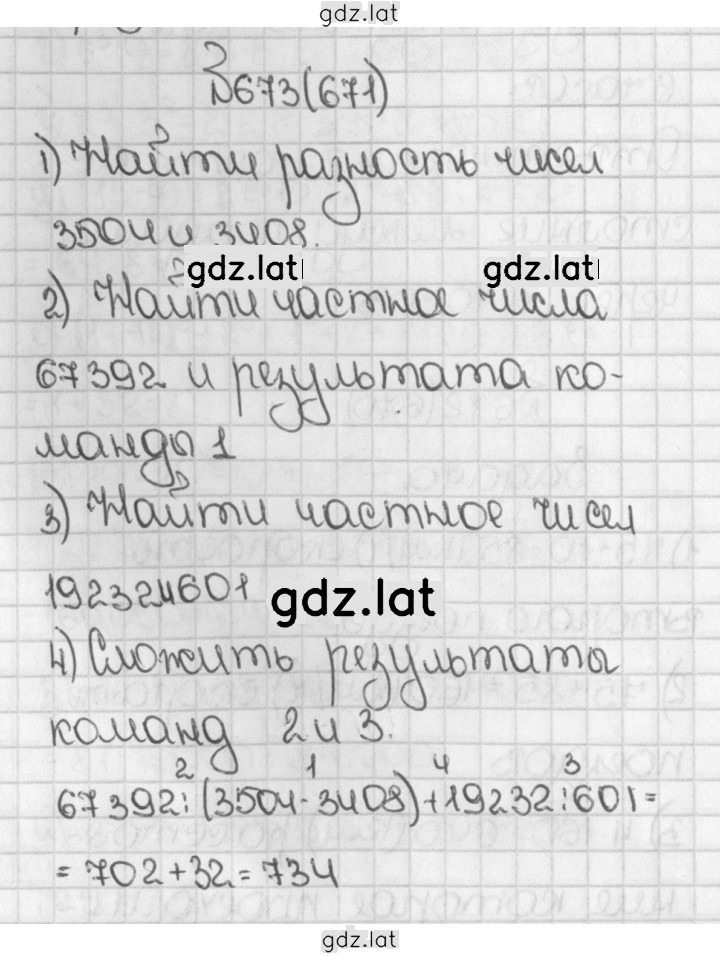 gdz.lat
№673(671)
1) Найти разность чисел
3504 и 3408.
gdz.lat gdz.lat
2) Найти частное числа
67392 и результата ко-
манды 1
3) Найти частное чисел
19232и601
gdz.lat
4) Сложить результаты
команд 2 и 3.
2 1 4 3
67392:(3504-3408)+19232:601=
=702+32=734
gdz.lat